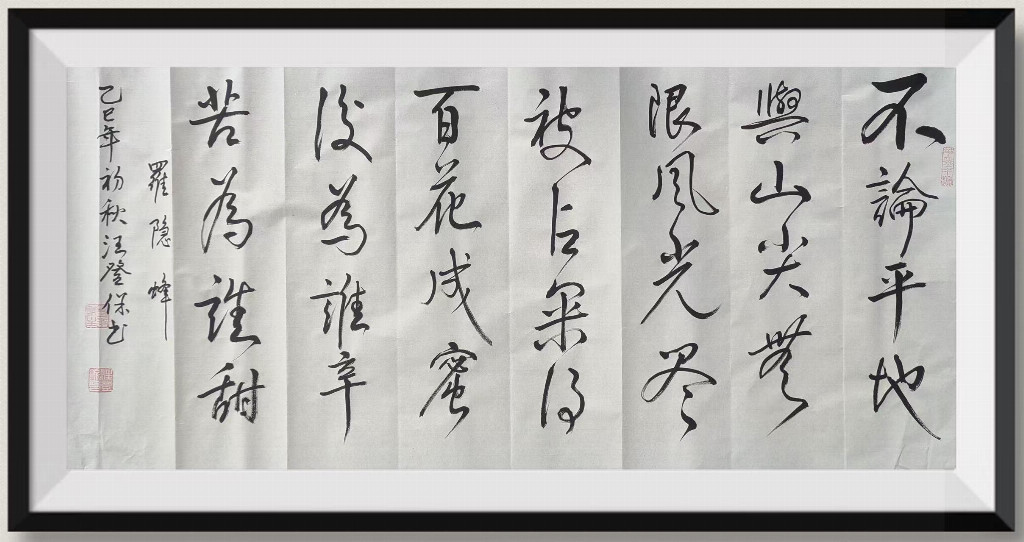 不論平地
與山尖無
限風光尽
被占采得
百花成蜜
後為誰辛
苦為誰甜
羅隐 蜂
乙巳年初秋汪登保书